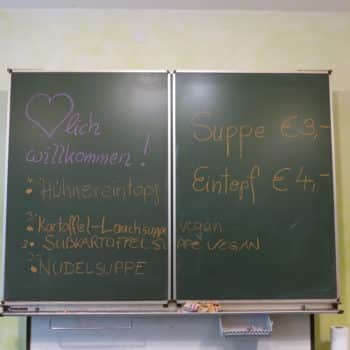 ♡lich
willkommen!
1. Hühnereintopf
2. Kartoffel-Lauchsuppe vegan
3. SÜßKARTOFFELSUPPE VEGAN
NUDELSUPPE
Suppe €3,-
Eintopf €4,-